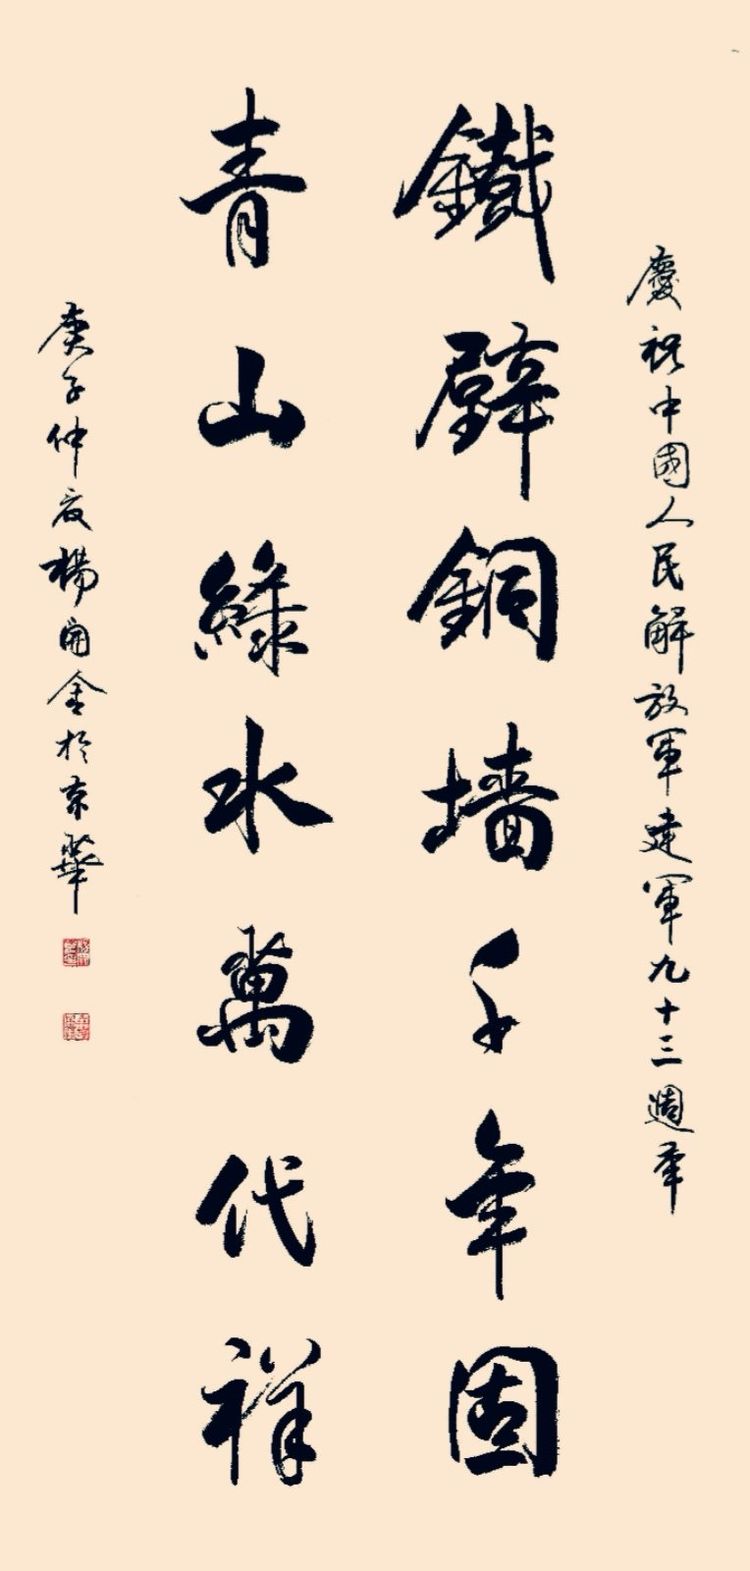 慶祝中國人民解放軍建軍九十三週年
鐵壁銅墙千年固
青山綠水萬代祥
庚子仲夏楊開金於京華